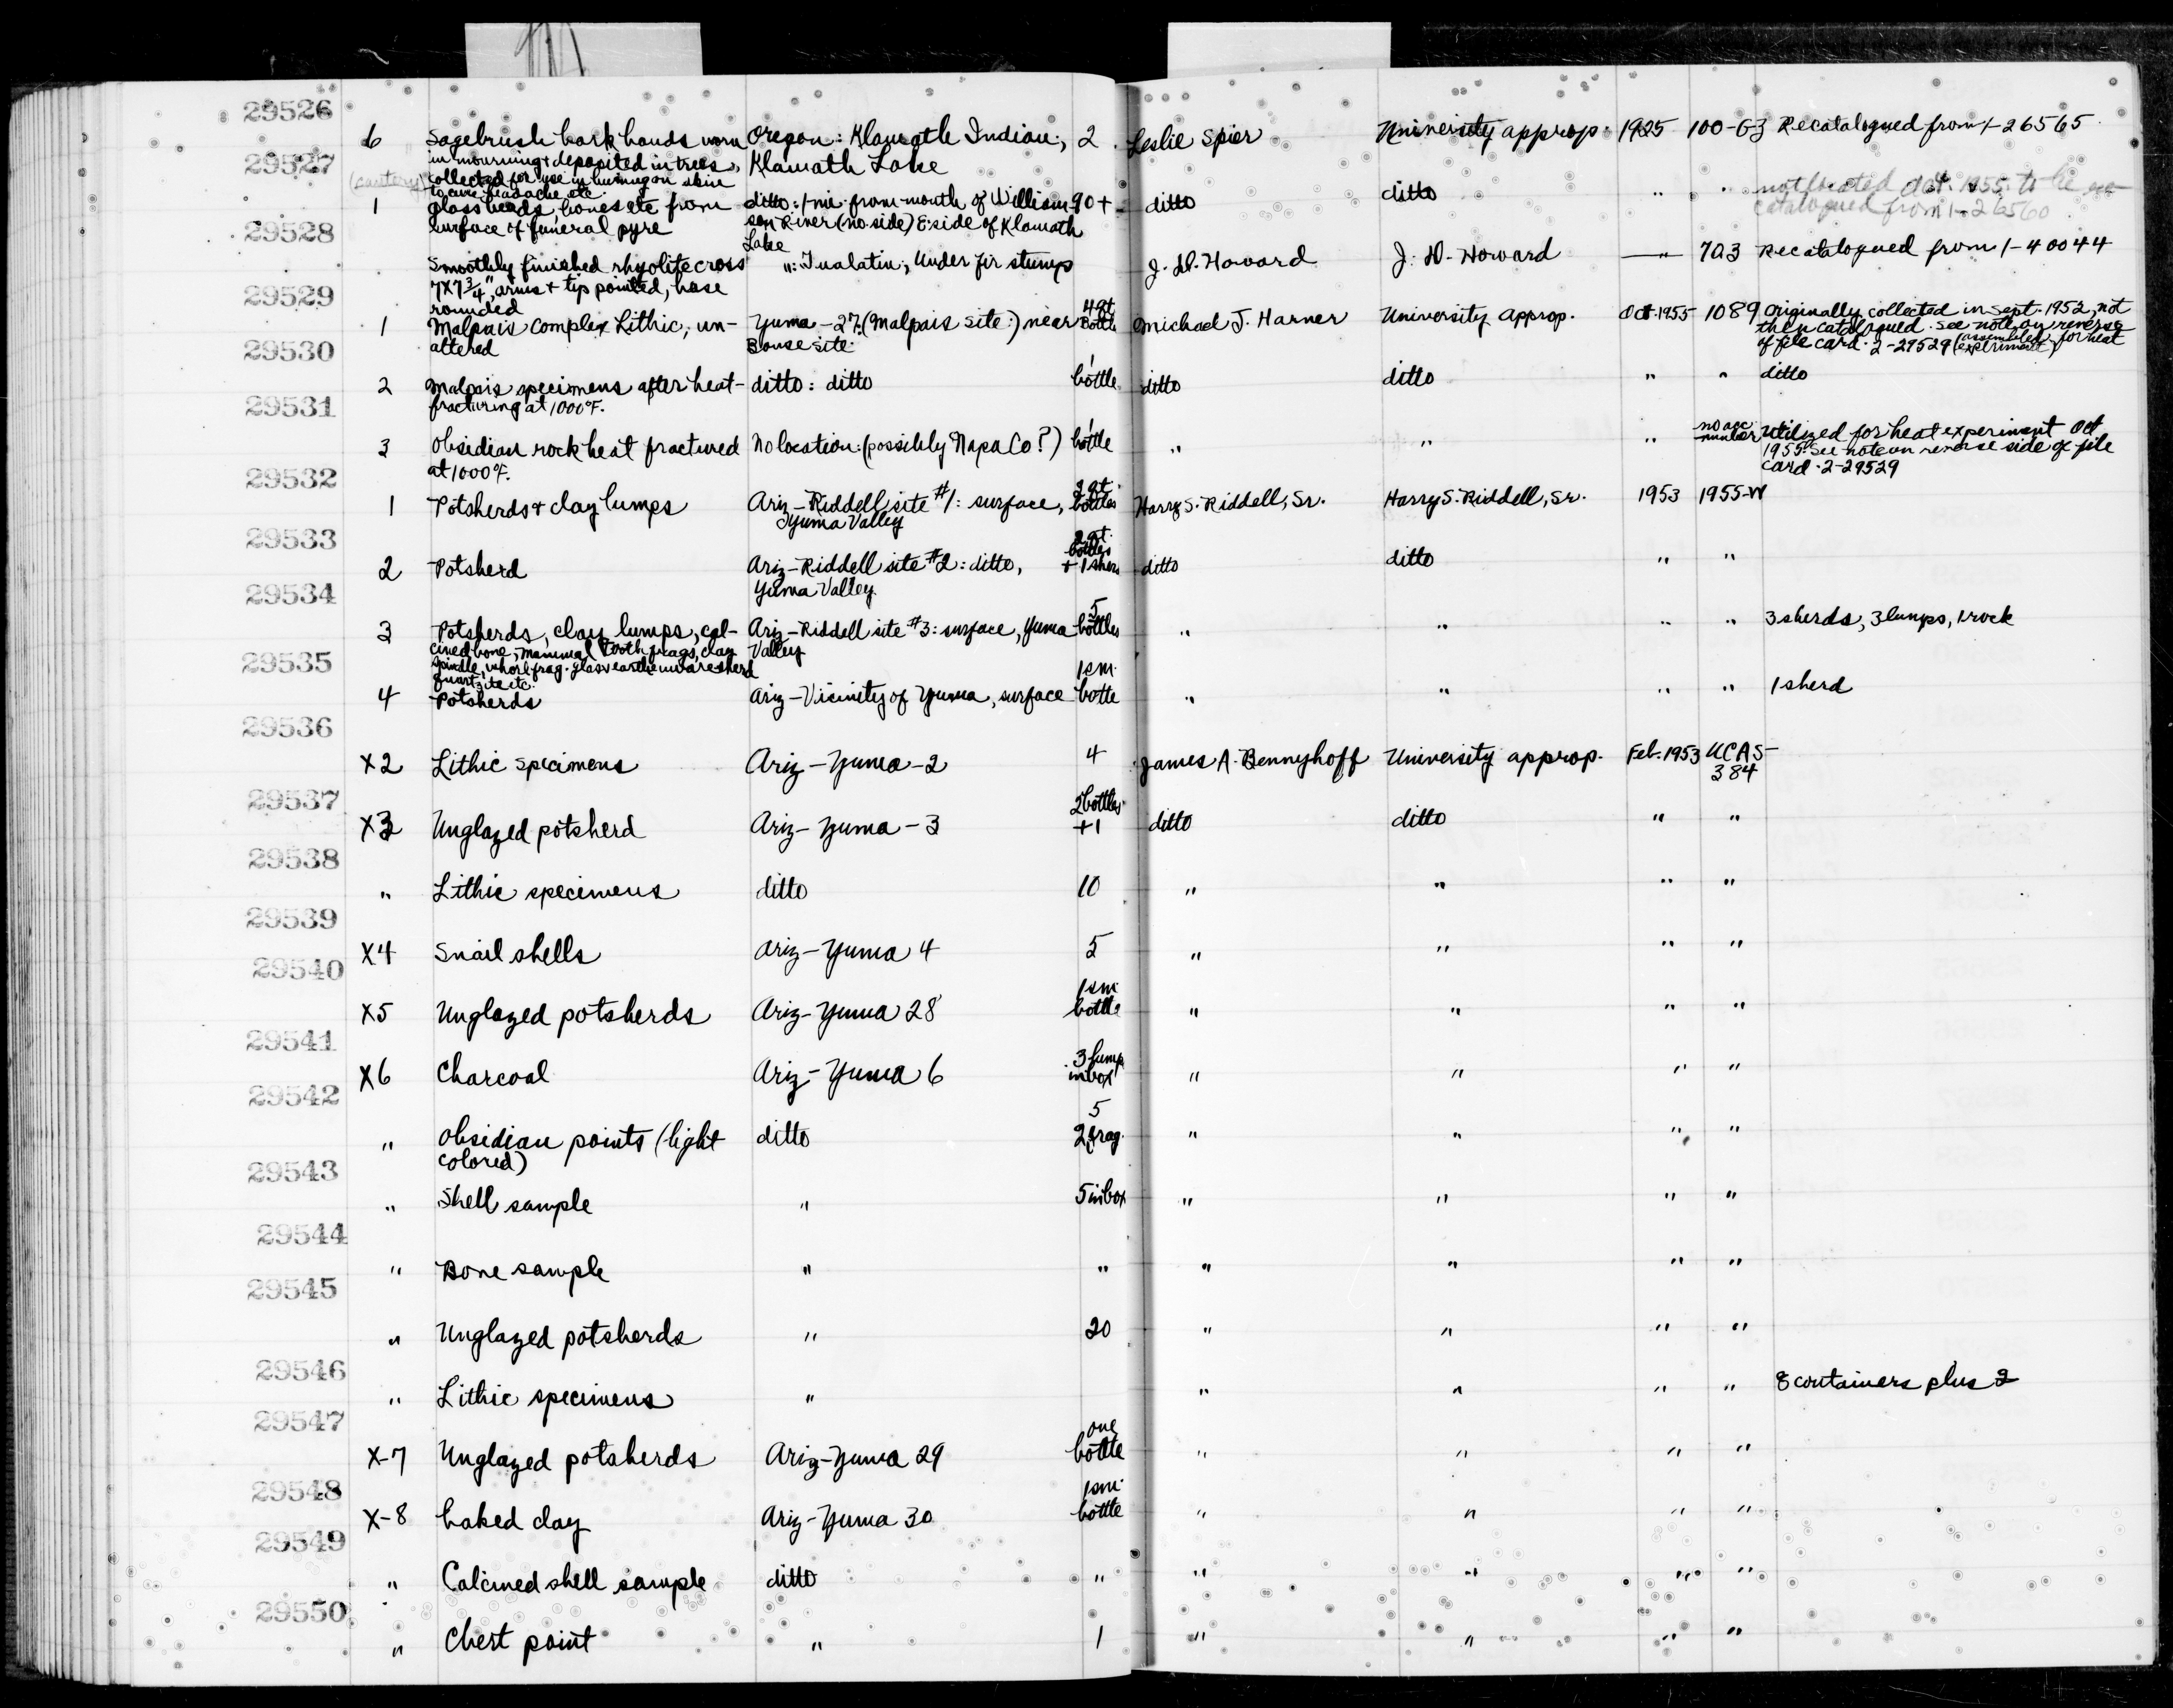 29526
6 Sagebrush bark bands worn Oregon: Klamath Indian; 2 Leslie Spier University approp. 1925 100-G3 Recatalogued from 1-26565
in mourning & deposited in trees, Klamath Lake
collected for use in burning on skin
to cure headache etc
29527
1 glass beads, bones etc from ditto: 1 mi. from mouth of William- 90+ ditto ditto " " not located Oct. 1955 to be
surface of funeral pyre son River (no. side) E. side of Klamath catalogued from 1-26560
Lake
29528
Smoothly finished rhyolite cross ": Tualatin; Under fir stump J. D. Howard J. D. Howard —"— 7A3 Recatalogued from 1-40044
7x7 3/4", arms & tip pointed, base
rounded
29529
1 Malpais Complex Lithic, un- Yuma-27 (Malpais site:) near 4 qt. Bottle Michael J. Harner University approp. Oct 1955 1089 Originally collected in Sept. 1952, not
altered Bouse site. then catalogued. See note on reverse
of file card. 2-29529 (assembled for heat experiment)
29530
2 Malpais specimens after heat- ditto: ditto 1 bottle ditto ditto " " ditto
fracturing at 1000°F.
29531
3 Obsidian rock heat fractured No location: (possibly Napa Co?) 1 bottle " " " no acc number Utilized for heat experiment Oct
at 1000°F. 1955. See note on reverse side of file
card. 2-29529
29532
1 Potsherds & clay lumps Ariz-Riddell site #1: surface, 2 qt. bottles Harry S. Riddell, Sr. Harry S. Riddell, Sr. 1953 1955-W
Yuma Valley
29533
2 Potsherd Ariz-Riddell site #2: ditto, 2 qt. bottles + 1 sherd ditto ditto " "
Yuma Valley.
29534
3 Potsherds, clay lumps, cal- Ariz-Riddell site #3: surface, Yuma 5 bottles " " " " 3 sherds, 3 lumps, 1 rock
cined bone, mammal tooth frags, clay Valley
spindle whorl frag. glass earthenware sherd
quartzite etc.
29535
4 Potsherds Ariz-Vicinity of Yuma, surface 1 sm. bottle " " " " 1 sherd
29536
X2 Lithic specimens Ariz-Yuma-2 4 James A. Bennyhoff University approp. Feb. 1953 UCAS-
384
29537
X3 Unglazed potsherd Ariz-Yuma-3 2 bottles +1 ditto ditto " "
29538
" Lithic specimens ditto 10 " " " "
29539
X4 Snail shells Ariz-Yuma 4 5 " " " "
29540
X5 Unglazed potsherds Ariz-Yuma 28 1 sm. bottle " " " "
29541
X6 Charcoal Ariz-Yuma 6 3 lump in box " " " "
29542
" Obsidian points (light ditto 5 2 frag. " " " "
colored)
29543
" Shell sample " 5 in box " " " "
29544
" Bone sample " " " " " "
29545
" Unglazed potsherds " 20 " " " "
29546
" Lithic specimens " " " " " 8 containers plus 2
29547
X-7 Unglazed potsherds Ariz-Yuma 29 one bottle " " " "
29548
X-8 baked clay Ariz-Yuma 30 1 sm. bottle " " " "
29549
" Calcined shell sample ditto " " " " "
29550
" Chert point " 1 " " " "